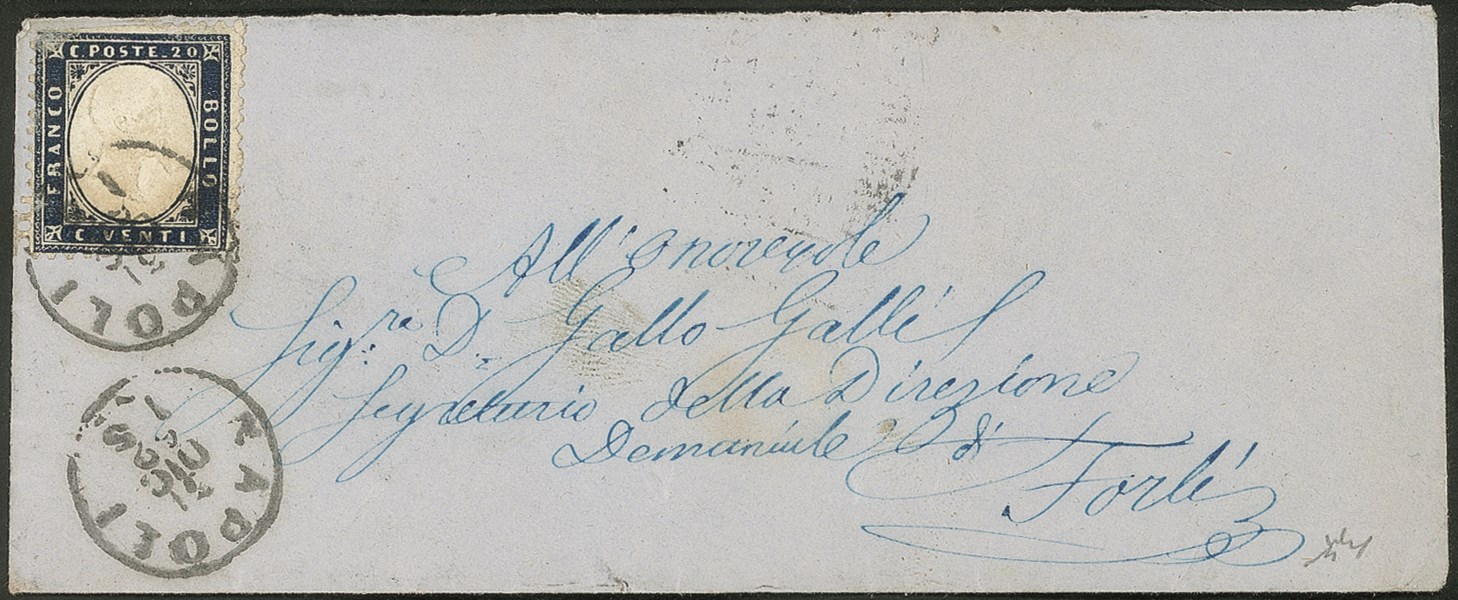 C. POSTE. 20
FRANCO
BOLLO
C. VENTI
NAPOLI
All' Onorevole
Sig.re D. Gallo Gallí
Segretario della Direzione
Demaniale di
Forlí